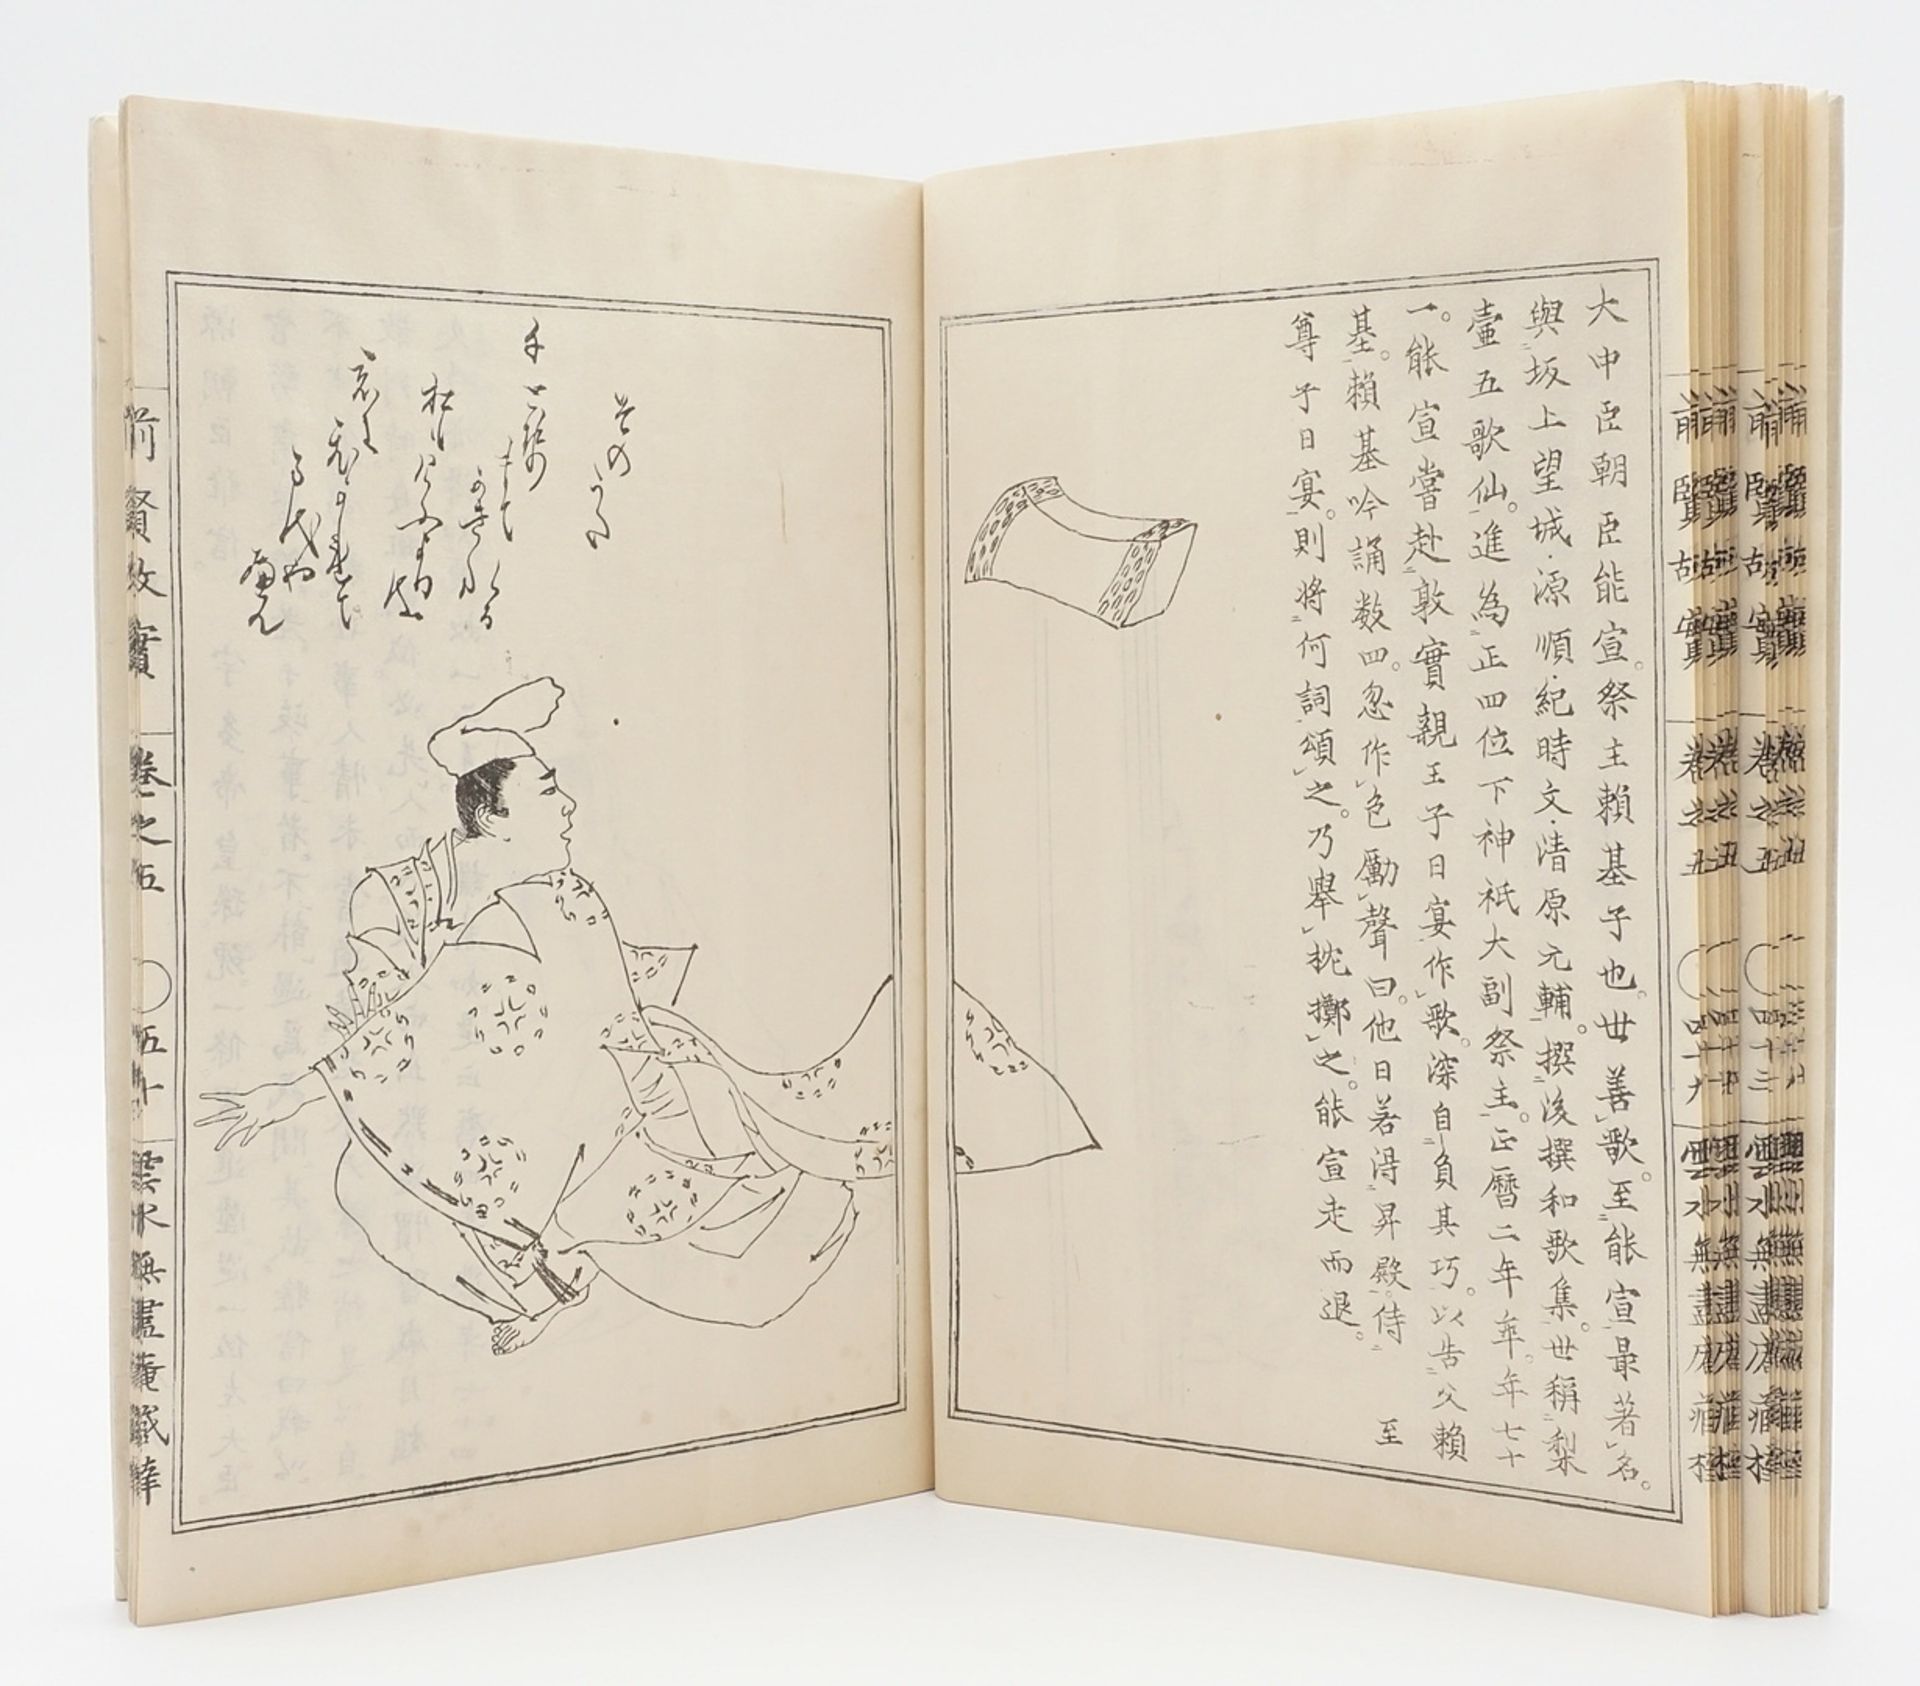 大中臣朝臣能宣。祭主賴基子也。世善歌。至能宣最著名。
與坂上望城.源順.紀時文.清原元輔。撰後撰和歌集。世稱梨
壷五歌仙。進為正四位下神祇大副祭主。正曆二年卒。年七十
一。能宣嘗赴敦實親王子日宴作歌。深自負其巧。以告父賴
基。賴基吟誦数四。忽作色勵聲曰。他日若得昇殿。侍 至
尊子日宴。則將何詞頌之。乃擧枕擲之。能宣走而退。
その
うた
千とせ
まて
かきれる
松も
けふよりは
君に
ひかれて
万代や
へん
前賢故實 卷之五 五十 雲水無盡庵藏梓